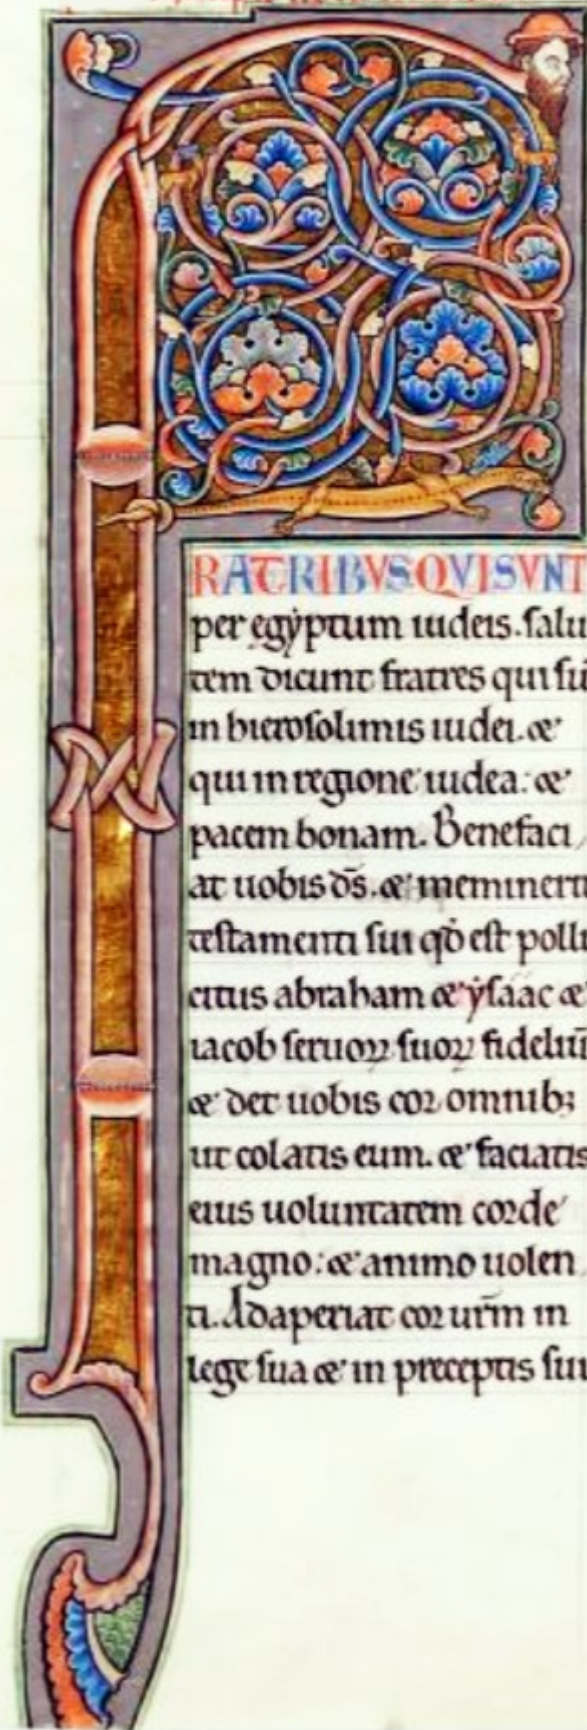 F
RATRIBVS QVI SVNT
per egẏptum iudeis. salu
tem dicunt fratres qui sū
in hierosolimis iudei. &
qui in regione iudea: &
pacem bonam. Benefaci
at uobis d̄s. & meminerit
testamenti sui qđ est polli
citus abraham & ẏsaac &
iacob seruoꝝ suoꝝ fideliū
& det uobis cor omnib;
ut colatis eum. & faciatis
eius uoluntatem corde
magno: & animo uolen
ti. Adaperiat cor ur̄m in
lege sua & in preceptis sui